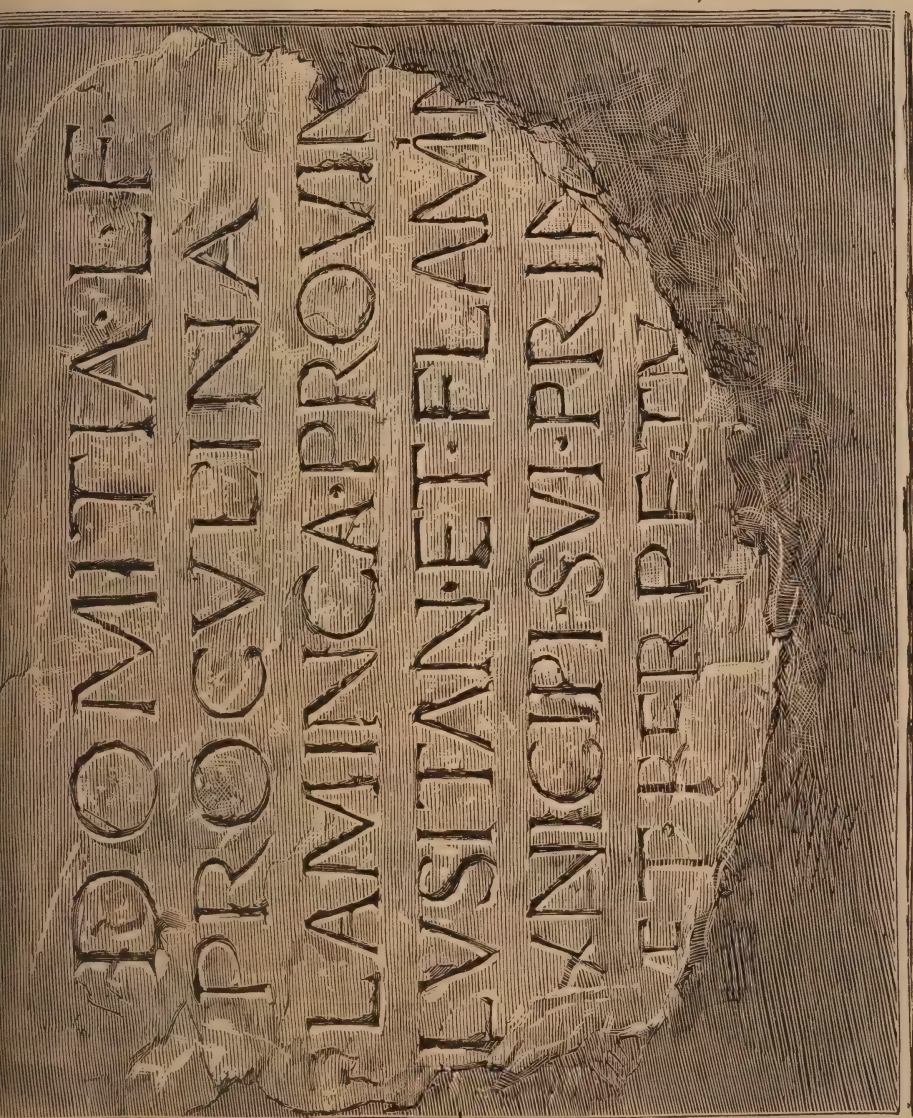 DOMITIA·L·F
PROCVLINA
LAMINCA·PROVIN
LVSITAN·ET·FLAMIN
VNICIPI·SVI·PRIM
ET·PERPETV